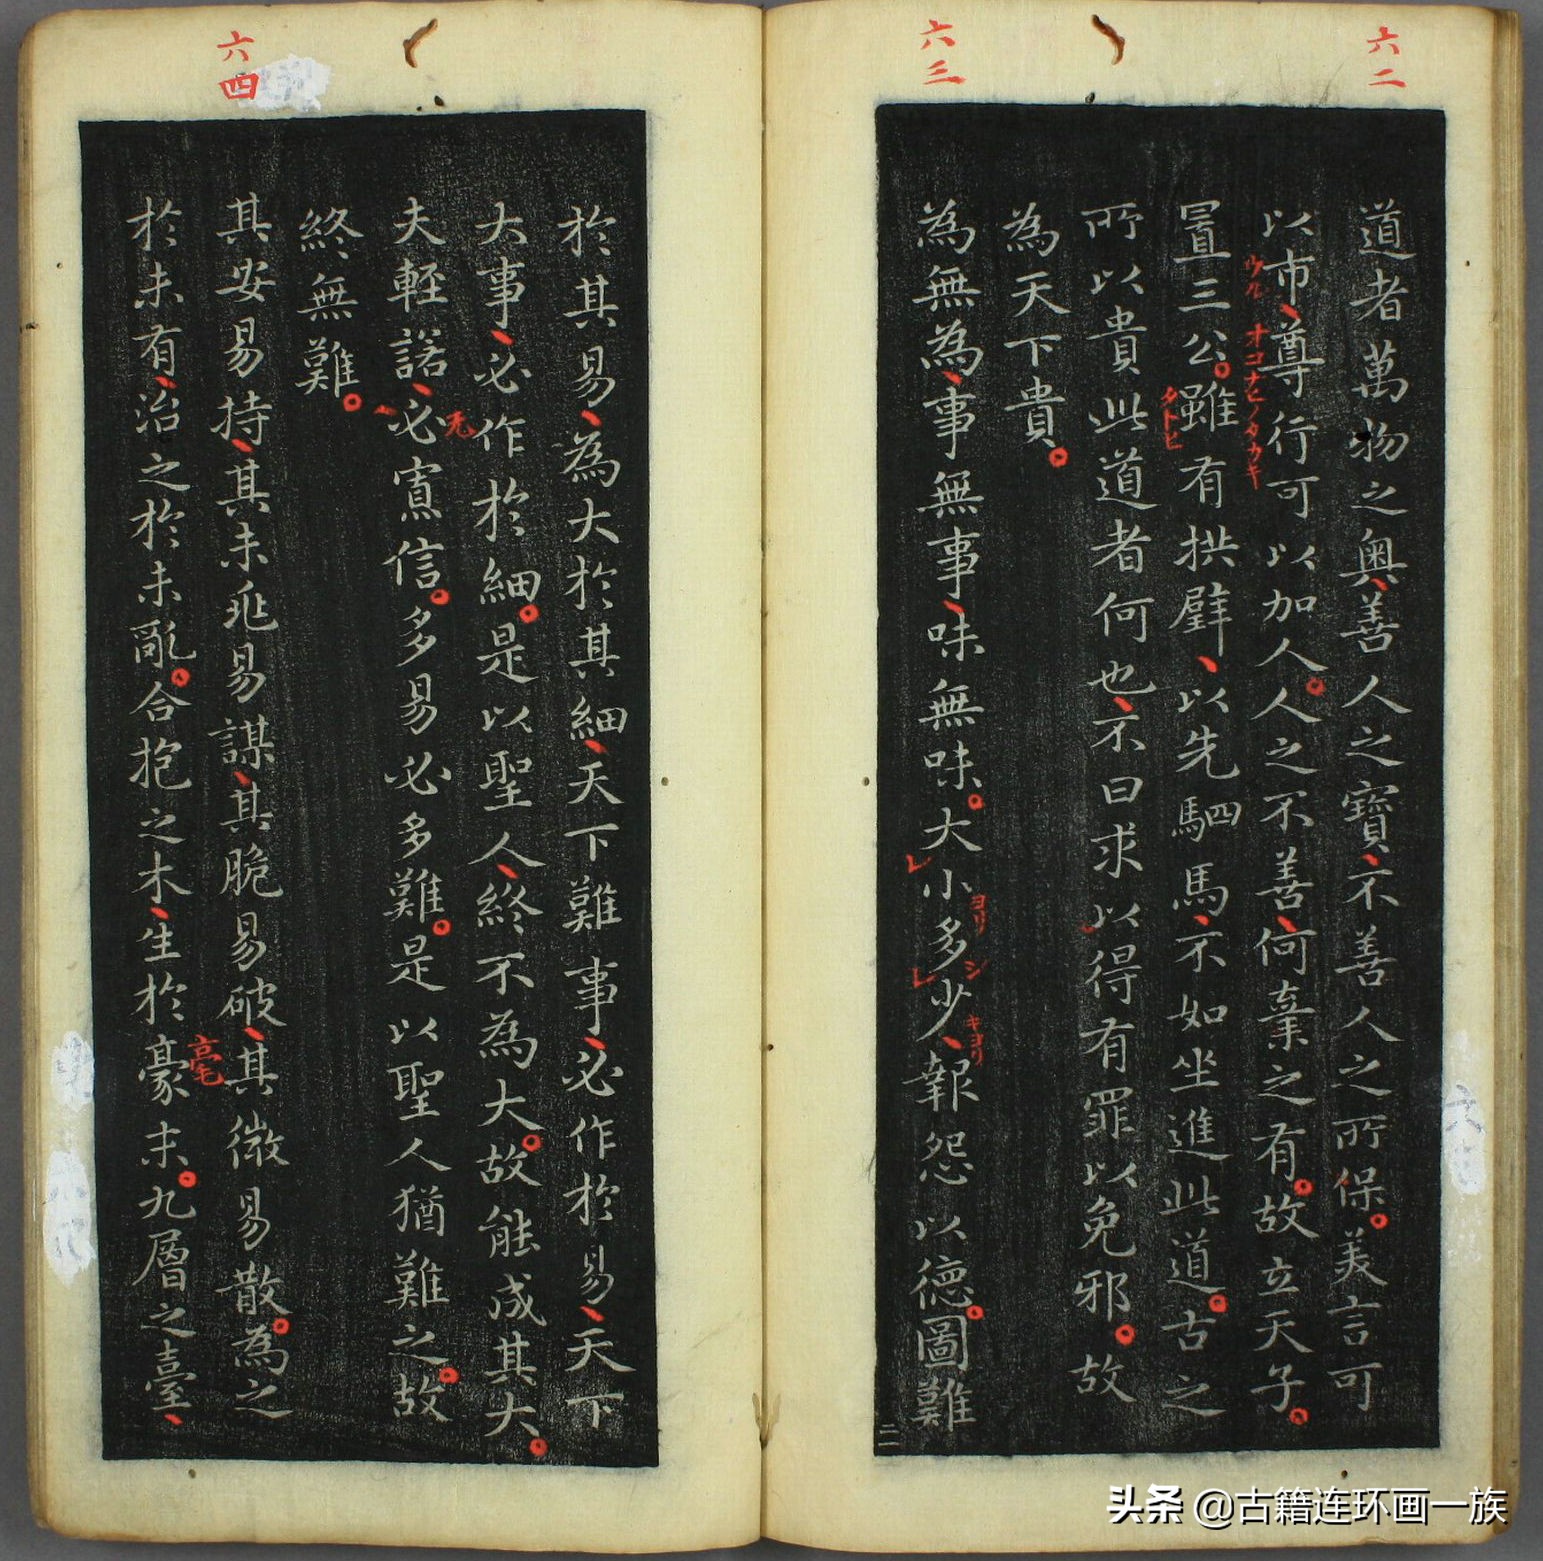 六二
道者萬物之奥、善人之寶、不善人之所保。美言可
以市、尊行可以加人。人之不善、何棄之有。故立天子。
ウル
オコナヒノタカキ
置三公。雖有拱璧、以先駟馬、不如坐進此道。古之
タトヒ
所以貴此道者何也、不曰求以得有罪以免邪。故
為天下貴。
六三
為無為、事無事、味無味。大小多少、報怨以德。圖難
ヨリ
シ
キヨリ
於其易、為大於其細、天下難事、必作於易、天下
大事、必作於細。是以聖人、終不為大。故能成其大。
夫輕諾、必寡信。多易必多難。是以聖人猶難之。故
終無難。
六四
其安易持、其未兆易謀、其脆易破、其微易散。為之
於未有、治之於未亂。合抱之木、生於豪末。九層之臺、
毫
头条 @古籍连环画一族